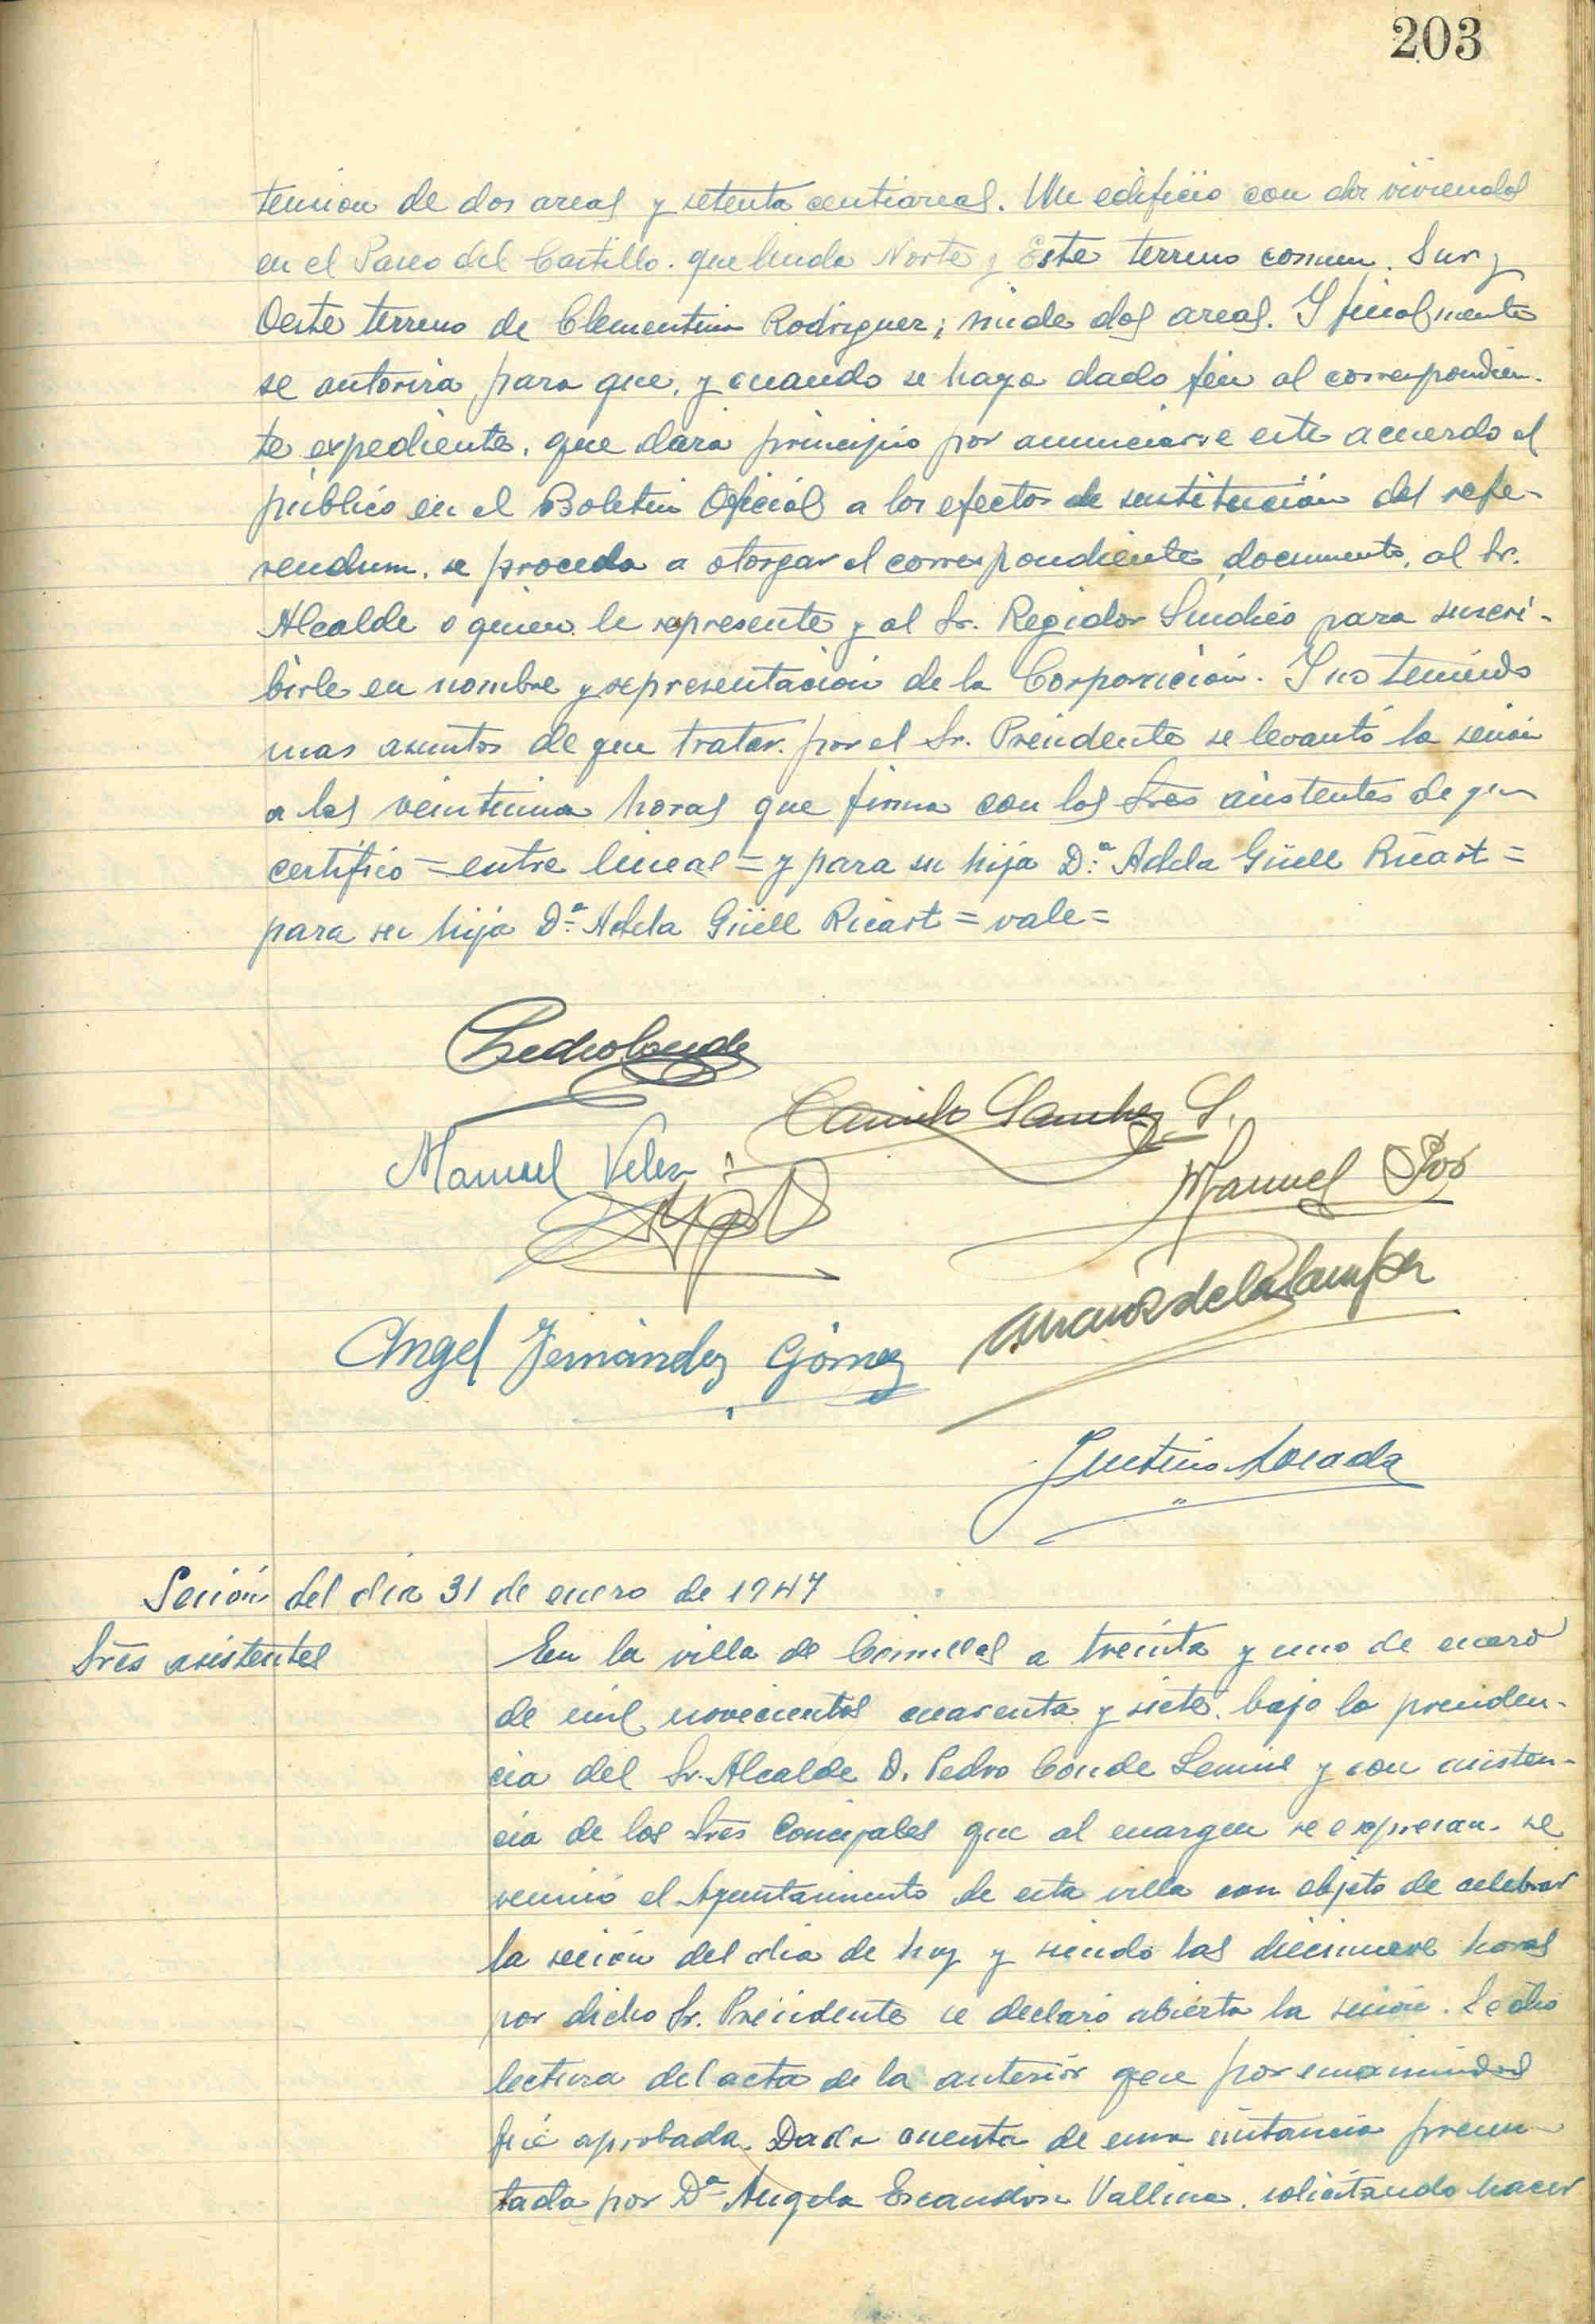 203
tension de dos areas y setenta centiareas. Un edificio con dos viviendas
en el Paseo del Castillo. que linda Norte y Este terreno comun. Sur y
Oeste terreno de Clementina Rodriguez; mide dos areas. Y finalmente
se autoriza para que, y cuando se haya dado fin al correspondien-
te expediente, que dará principio por anunciarse este acuerdo al
público en el Boletin Oficial a los efectos de sustitución del refe-
rendum. se proceda a otorgar el correspondiente documento, al Sr.
Alcalde o quien le represente y al Sr. Regidor Sindico para suscri-
birle en nombre y representacion de la Corporación. Y no teniendo
mas asuntos de que tratar. por el Sr. Presidente se levantó la sesión
a las veintiuna horas que firma con los Sres asistentes de que
certifico = entre lineas = y para su hija D.ª Adela Güell Ricart =
para su hija D.ª Adela Güell Ricart = vale =
Pedro Conde
Camilo Sanchez S.
Manuel Velez
Manuel Poo
Angel Fernández Gómez
Justino Losada
Sesión del dia 31 de enero de 1947
Sres asistentes
En la villa de Comillas a treinta y uno de enero
de mil novecientos cuarenta y siete. bajo la presiden-
cia del Sr. Alcalde D. Pedro Conde y con asisten-
cia de los Sres Concejales que al margen se expresan. se
reunió el Ayuntamiento de esta villa con objeto de celebrar
la sesión del dia de hoy y siendo las diecinueve horas
por dicho Sr. Presidente se declaró abierta la sesión. Se dio
lectura del acta de la anterior que por unanimidad
fué aprobada. Dada cuenta de una instancia presen-
tada por Dª Angela Escandon Vallina. solicitando hacer